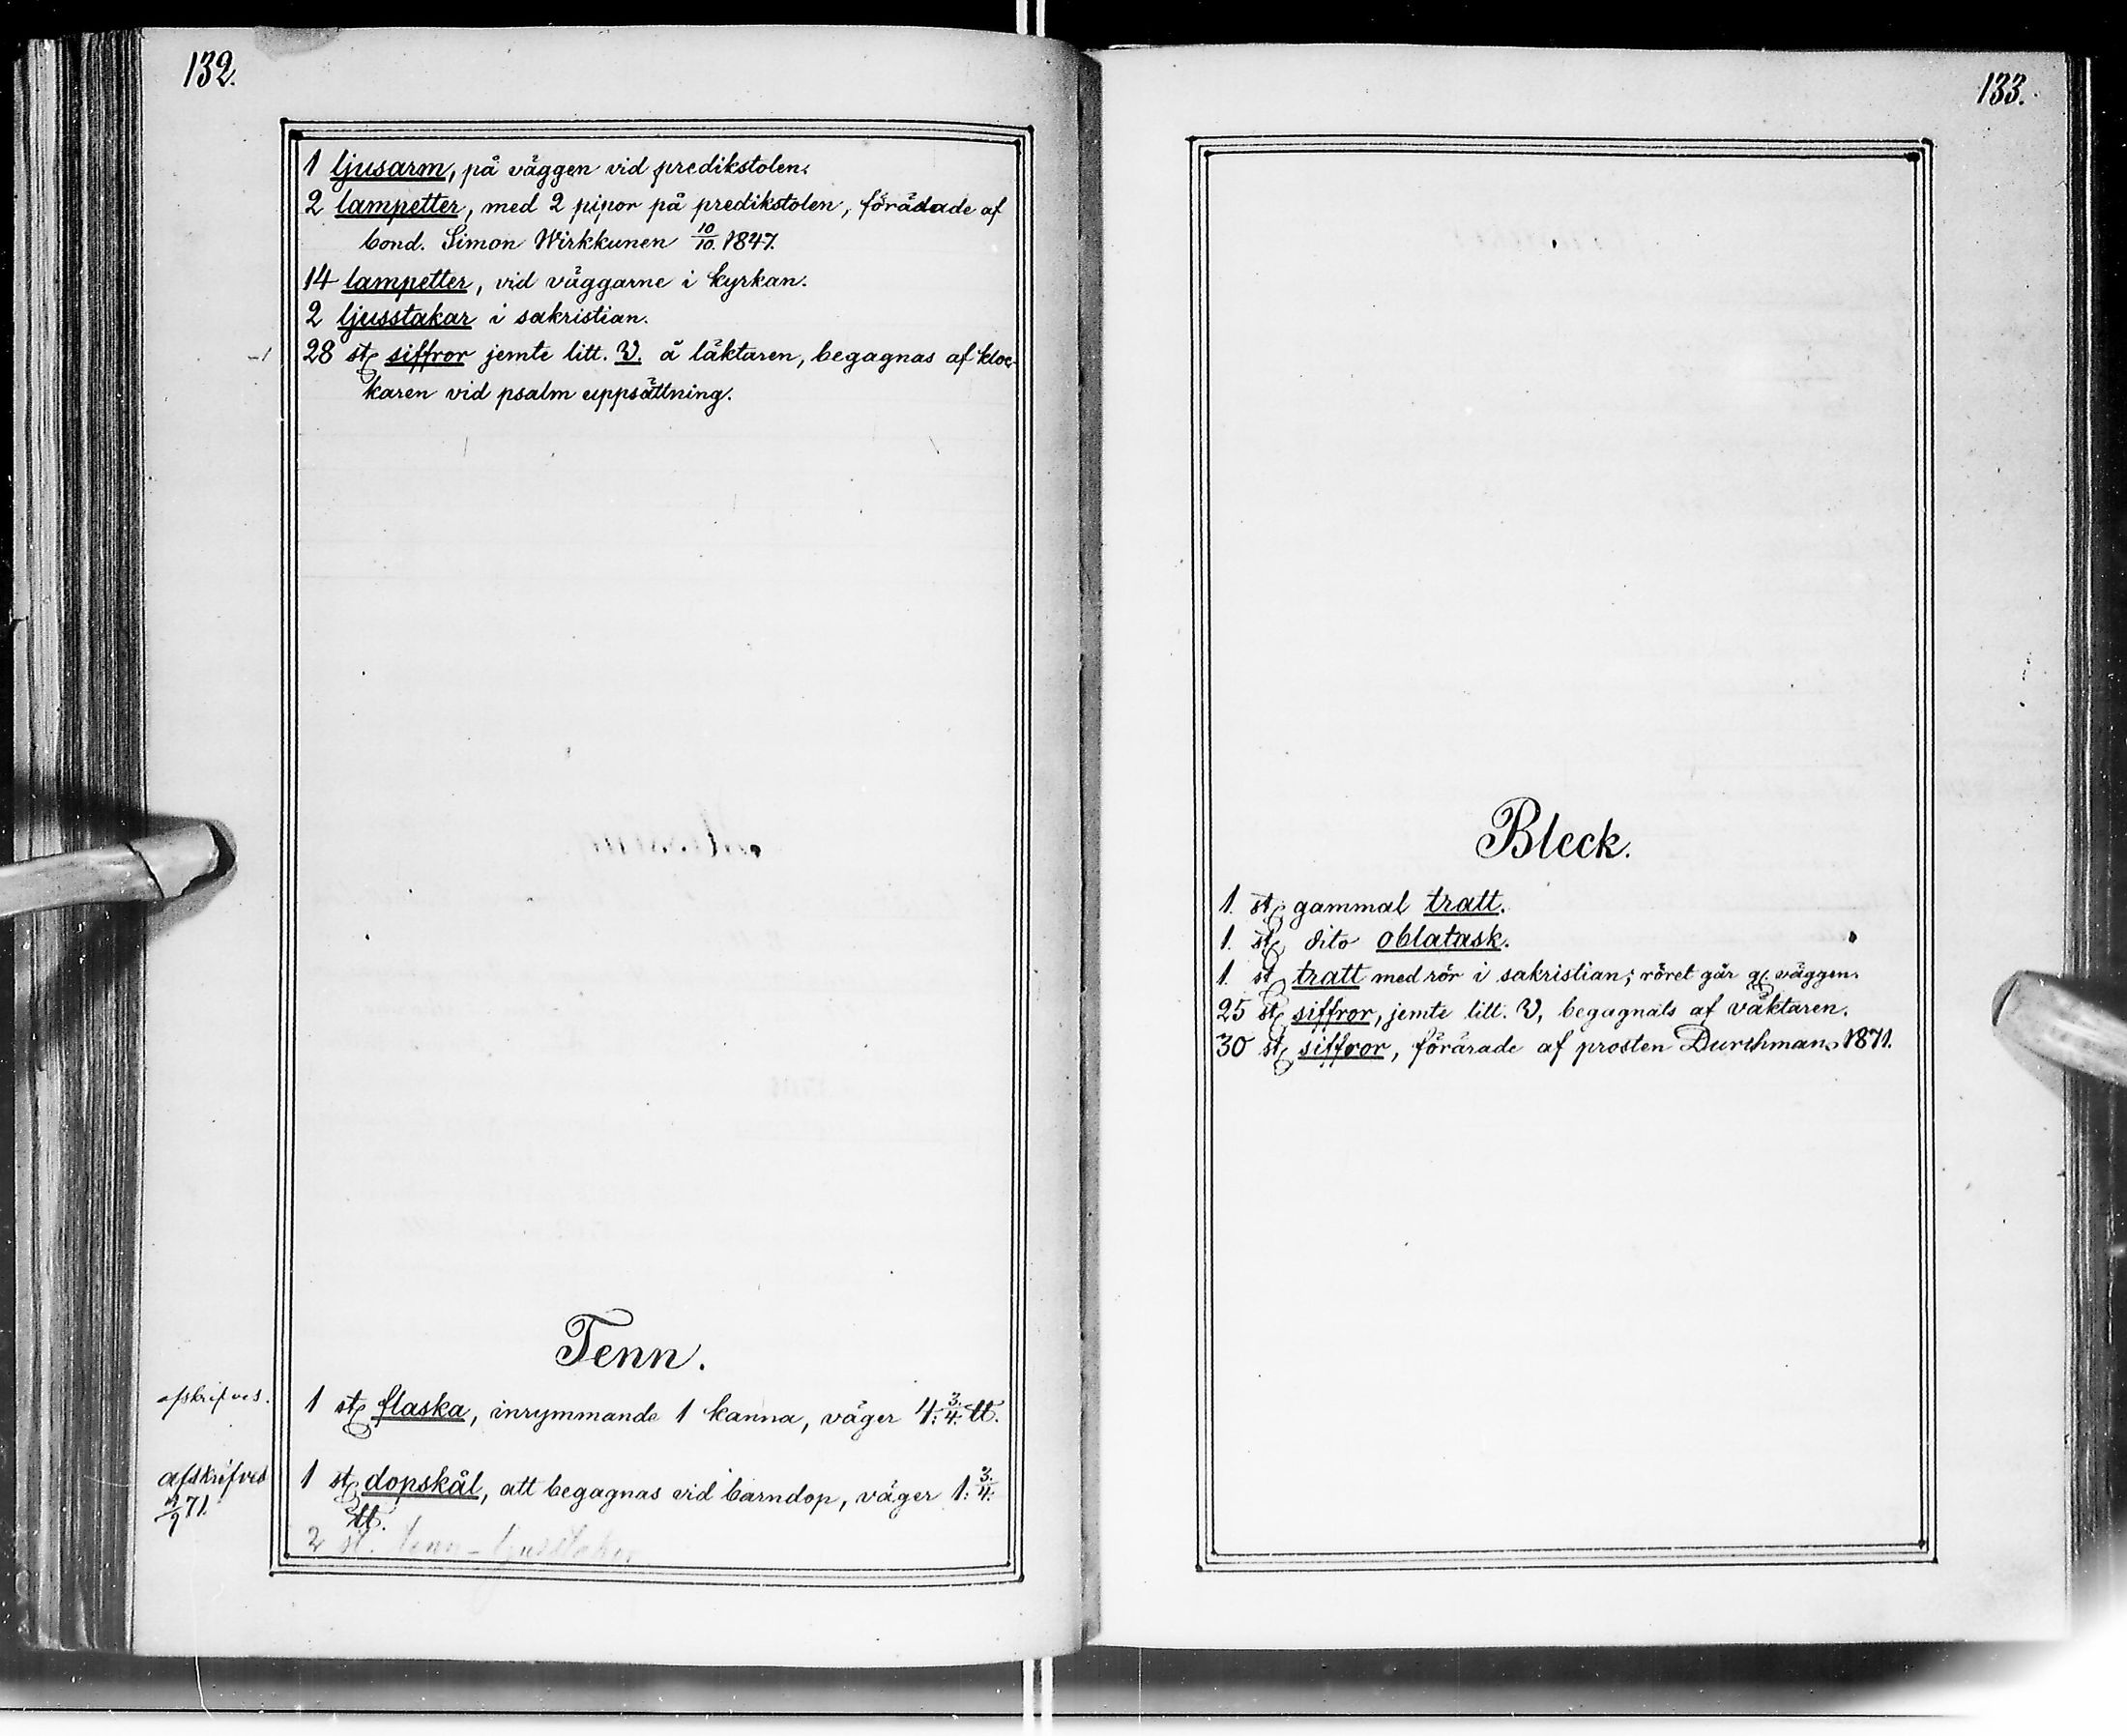 132.
1 ljusarm, på väggen vid predikstolen.
2 lampetter, med 2 pipor på predikstolen, förädade af
bond. Simon Wirkkunen 10/10. 1847.
14 lampetter, vid väggarne i kyrkan.
2 ljusstakar i sakristian.
-1 28 st siffror jemte litt. V. å läktaren, begagnas af kloc-
karen vid psalm uppsättning.
Tenn.
afskrifves. 1 st flaska, inrymmande 1 kanna, väger 4: 3/4: ℔.
afskrifves 1 st dopskål, att begagnas vid barndop, väger 1: 3/4:
71. ℔.
2 st. tenn-ljusstakar
133.
Bleck.
1. st gammal tratt.
1. st dito oblatask.
1. st tratt med rör i sakristian; röret går gm väggen.
25 st siffror, jemte litt. V, begagnats af väktaren.
30 st siffror, förärade af prosten Durchman 1871.